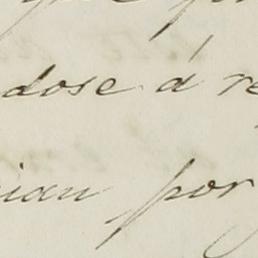 dose á re
ian por